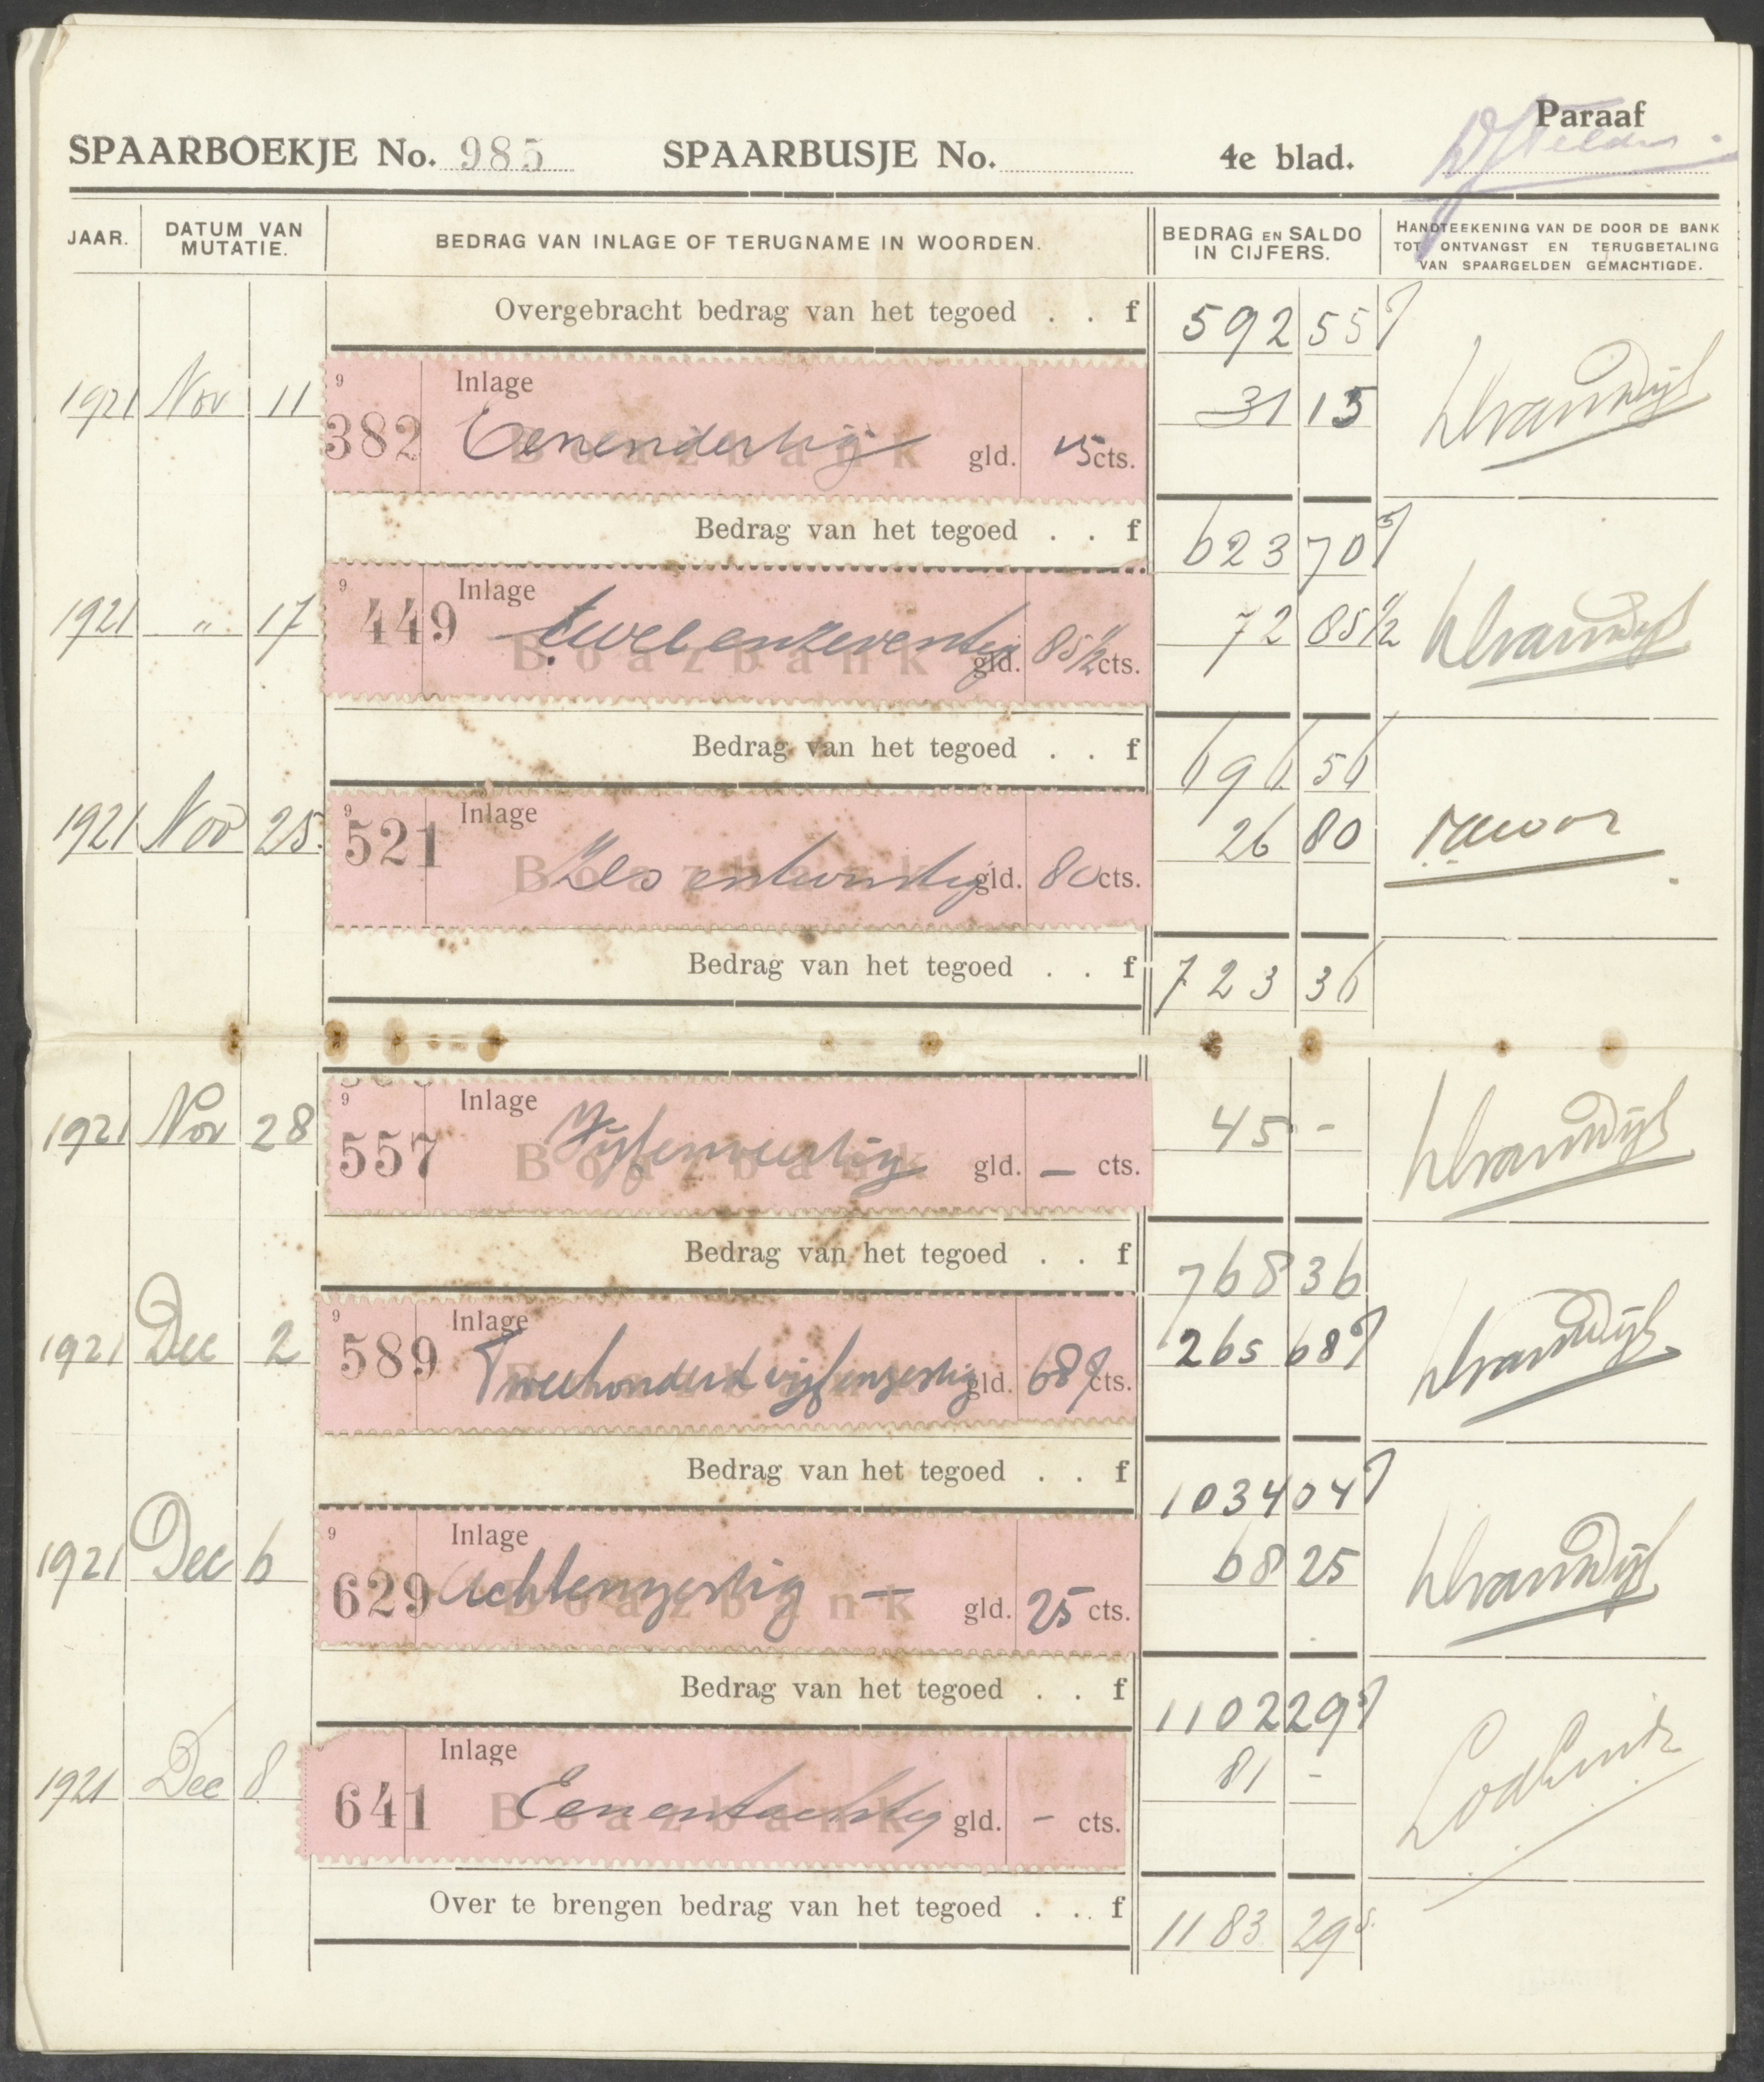 Paraaf
SPAARBOEKJE No. 985 SPAARBUSJE No. 4e blad.
JAAR. DATUM VAN MUTATIE. BEDRAG VAN INLAGE OF TERUGNAME IN WOORDEN. BEDRAG EN SALDO IN CIJFERS. HANDTEEKENING VAN DE DOOR DE BANK TOT ONTVANGST EN TERUGBETALING VAN SPAARGELDEN GEMACHTIGDE.
Overgebracht bedrag van het tegoed . . f 592 55⁵
1921 Nov 11 9 382 Inlage Boazbank Eenendertig gld. 15 cts. 31 15
Bedrag van het tegoed . . f 623 70⁵
1921 " 17 9 449 Inlage Boazbank tweeenzeventig gld. 85 1/2 cts. 72 85 1/2
Bedrag van het tegoed . . f 696 56
1921 Nov 25. 9 521 Inlage Boazbank Zes entwintig gld. 80 cts. 26 80
Bedrag van het tegoed . . f 723 36
1921 Nov 28 9 557 Inlage Boazbank Vijfenveertig gld. — cts. 45 -
Bedrag van het tegoed . . f 768 36
1921 Dec 2 9 589 Inlage Boazbank Tweehonderd vijfenzestig gld. 68⁵ cts. 265 68⁵
Bedrag van het tegoed . . f 1034 04⁵
1921 Dec 6 9 629 Inlage Boazbank Achtenzestig — gld. 25 cts. 68 25
Bedrag van het tegoed . . f 1102 29⁵
1921 Dec 8 641 Inlage Boazbank Eenentachtig gld. - cts. 81 -
Over te brengen bedrag van het tegoed . . . f 1183 29⁵